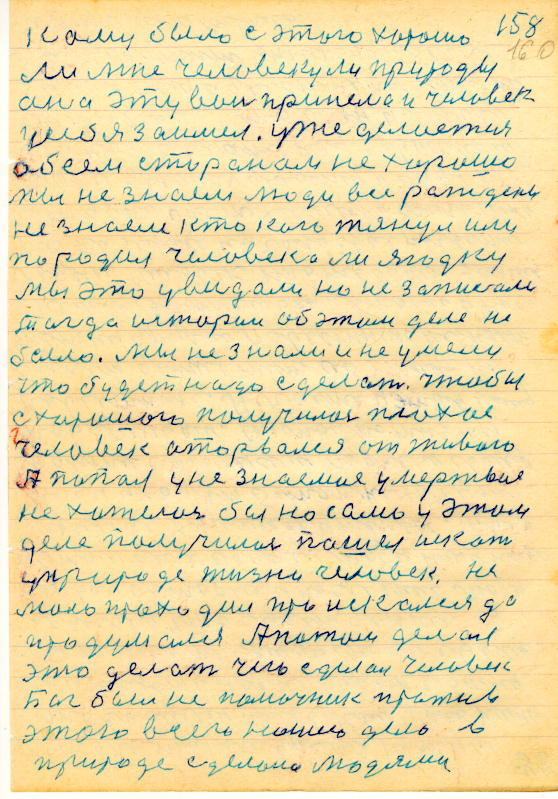 158
160
Кому было с этого хорошо
ли мне человеку ли природы
она эту вои принела и человек
у себя заимел. уже делиется
обсем старанам не хорошо
мы не знаем люди все раждены
не знаем кто кого тянул или
породил человека ли ягодку
мы это увидали но не записали
тагда истории об этом деле не
было. Мы не знали и не умели
что будет надо сделат. чтобы
с хорошого получилос плохое
человек аторвался от живого
А попал у не знаемае умертвае
не хотелос бы но само у этом
деле получилос пошел искат
у природе жизни человек. не
мало праходил про искался до
продумался А потом делал
это делат что сделал человек
Бог был не помочник против
этого всего нашо дело в
природе сделано людями